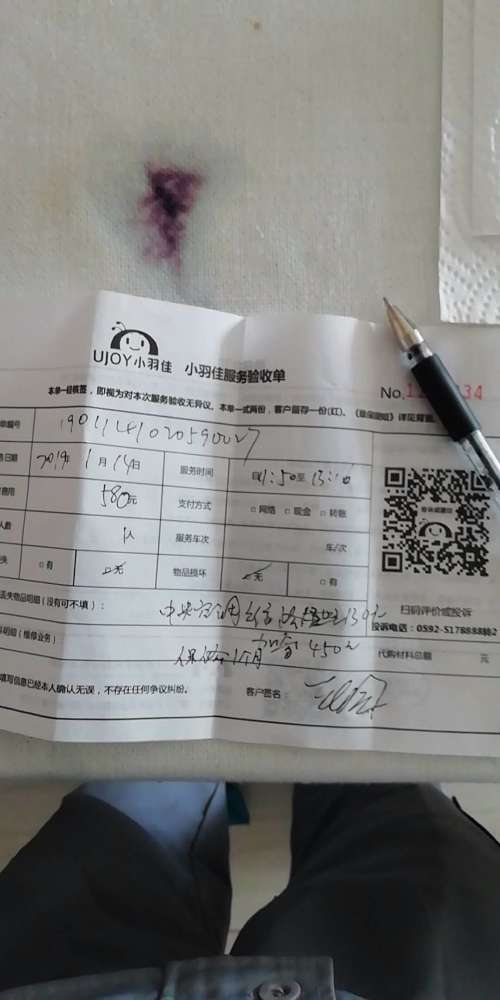 UJOY小羽佳 小羽佳服务验收单
本单一经核签，即视为对本次服务验收无异议。本单一式两份，客户留存一份(红)。
No.
单编号 1901141020590027
务日期 2019年 1月 14日 服务时间 至
费用 580元 支付方式 □ 网络 □ 现金 □ 转账
人数 人 服务车次 车/次
失 □ 有 □ 无 物品损坏 □ 无 □ 有
丢失物品明细（没有可不填）：
扫码评价或投诉
投诉电话：0592-5178888转2
料明细（维修业务） 加氟 450元 代购材料总额 元
保修 1个月
填写信息已经本人确认无误，不存在任何争议纠纷。 客户签名：